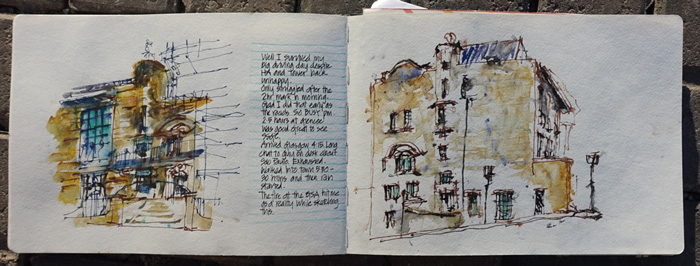 Well I survived my
big driving day despite
HA and "lower" back
unhappy.
Only struggled after the
2hr mark in morning.
Glad I did that early as
the roads SO BUSY pm
2.5 hours at
Was good to see
Arrived Glasgow 4.15. Long
chat to guy on desk about
Sao Paulo. Exhausted,
walked into town 5.30 -
and then rain
started.
The fire at the GSA hit me
as a reality while sketching
this.